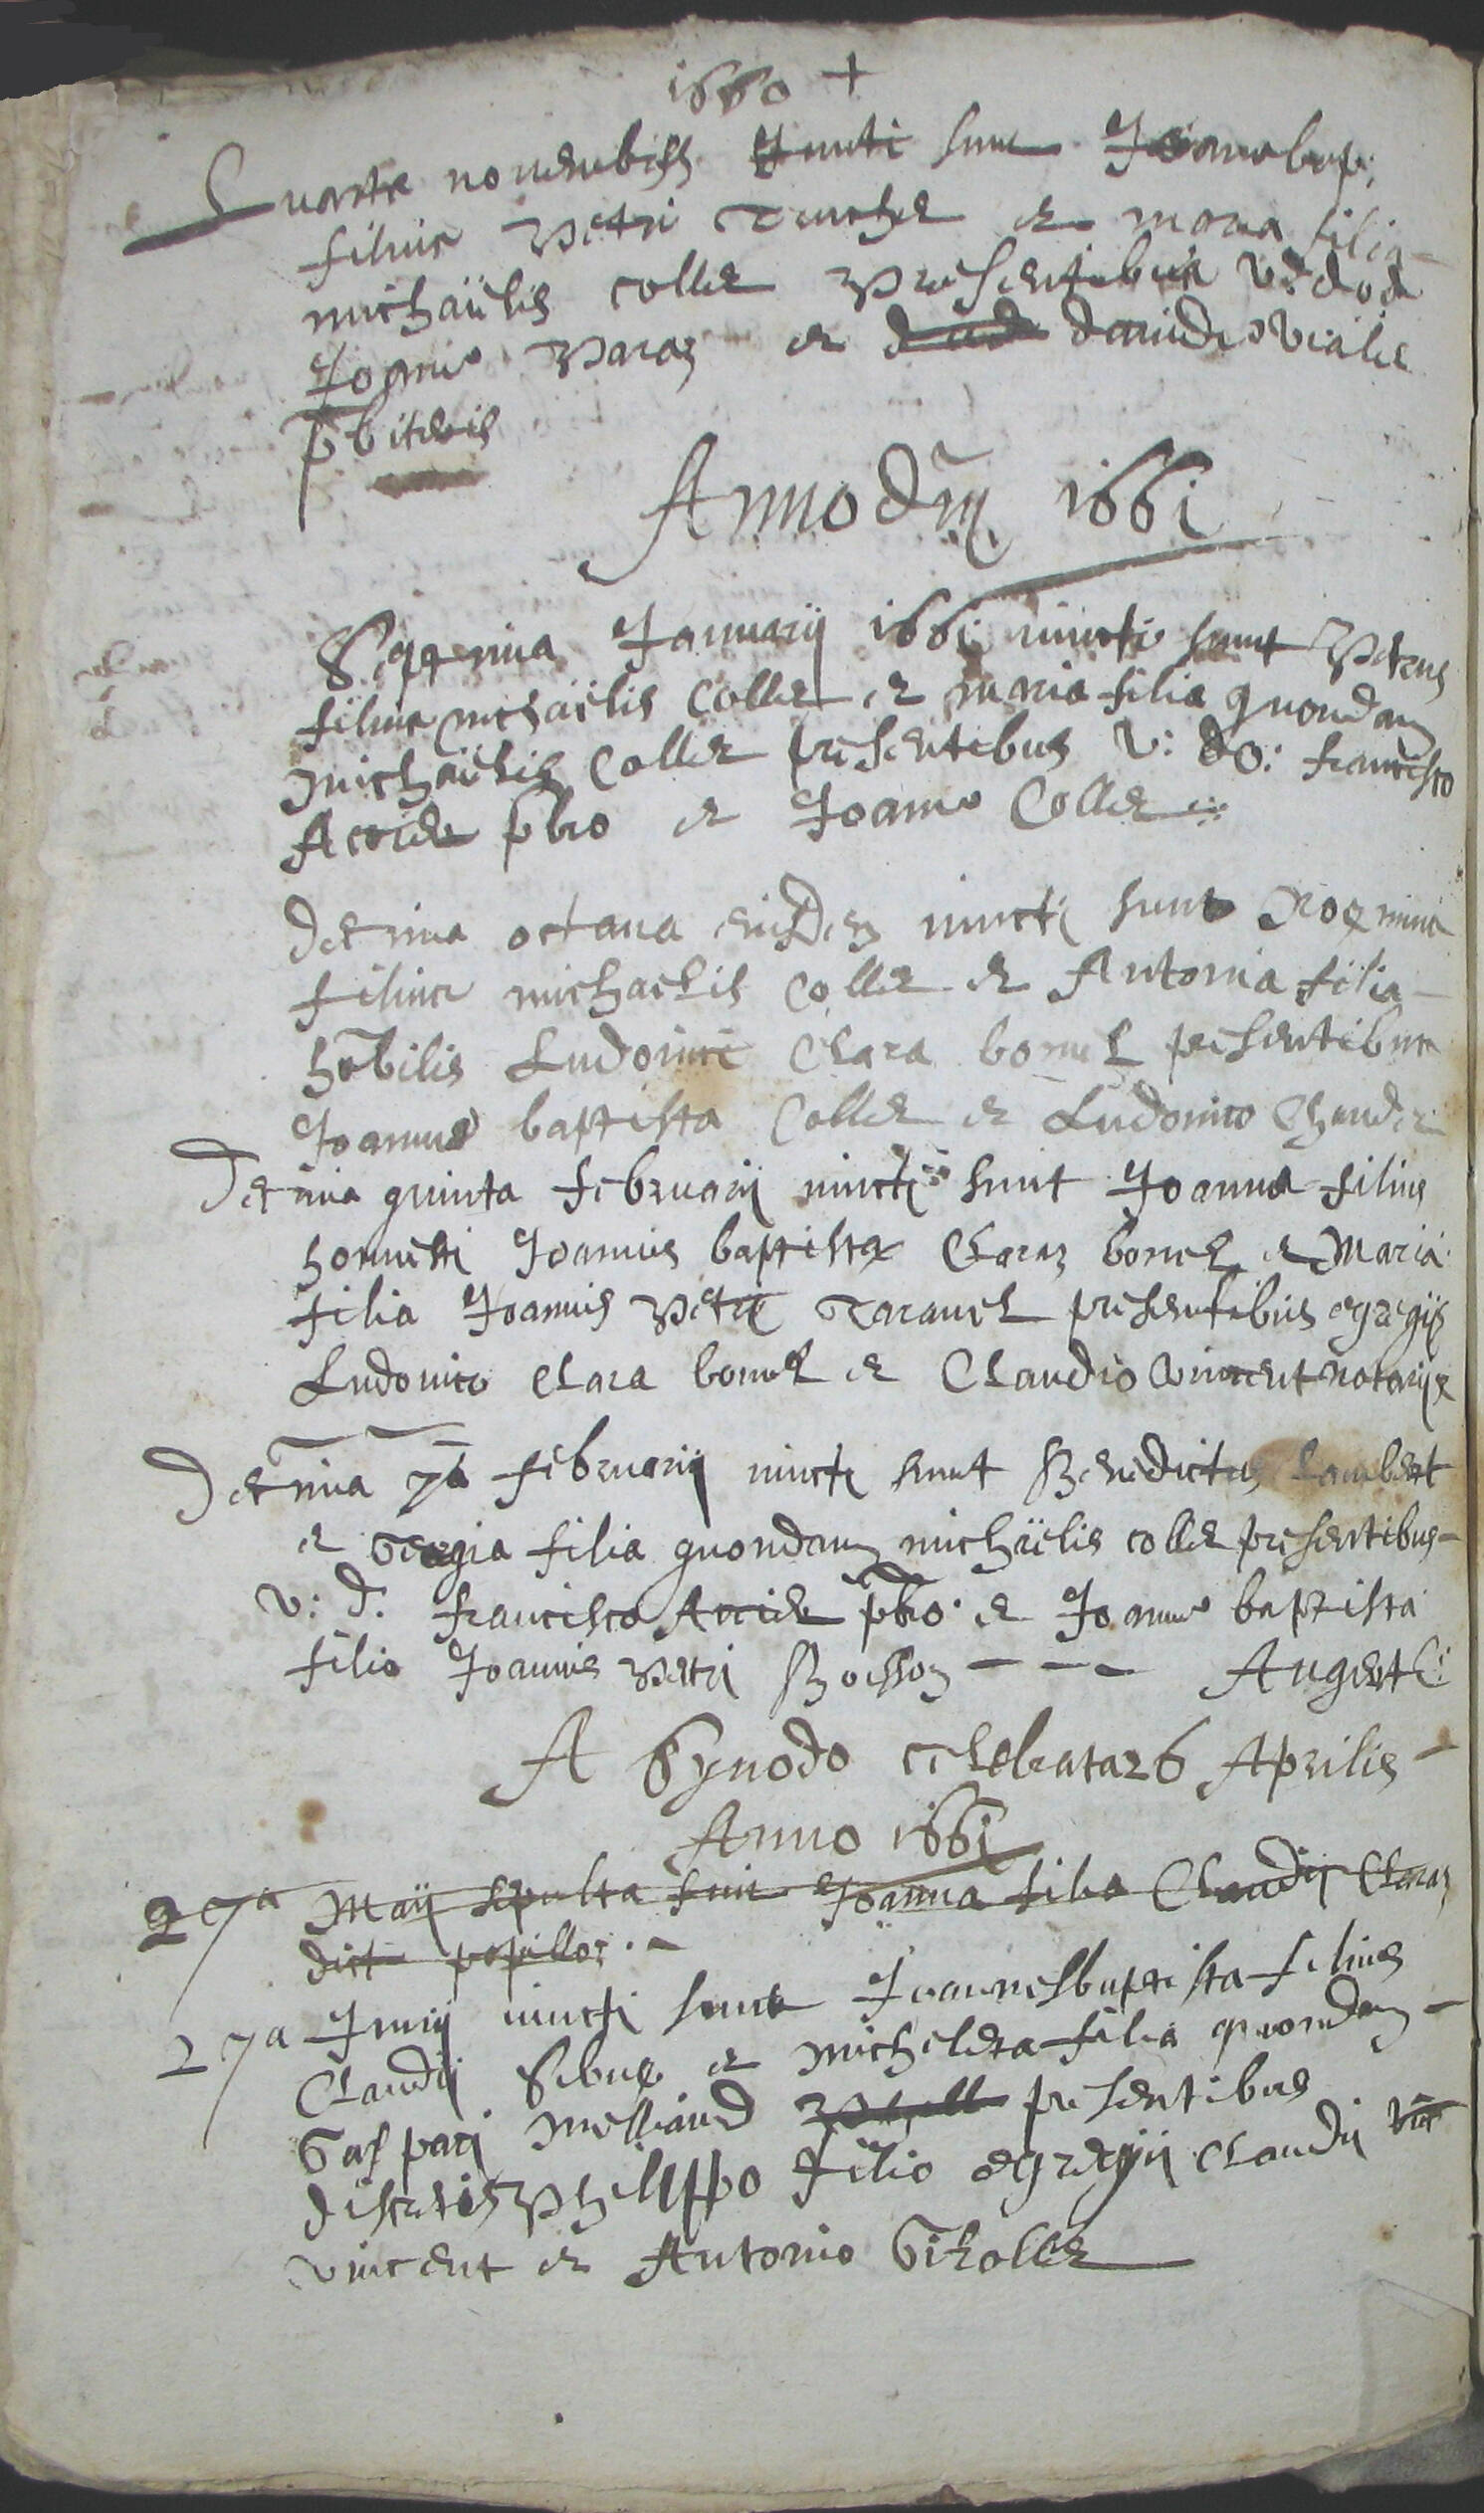 1660 +
Quarta novembris Juncti sunt
filius Petri et maria filia
michaëlis collet presentibus v: d: d
Joanne Paraz et davide vialet
pbiteris
Anno dni 1661
Septima Januarij 1661 iuncti sunt Petrus
filius michaëlis Collet et maria filia quondam
michaëlis Collet presentibus v: do: francisco
pbro et Joanne Collet
decima octava eiusdem iuncti sunt
filius michaelis Collet et Antonia filia
hobilis Ludovici Clara bonel presentibus
Joanne baptista Collet et Ludovico
decima quinta februarij iuncti sunt Joannes filius
honnesti Joannis baptistæ Claraz bonel et Maria
filia Joannis Petri Taravel presentibus egregijs
Ludovico Clara bonel et Claudio vincent notarijs
decima 7a februarij iuncti sunt Benedictus Lambert
et filia quondam michaëlis collet presentibus
v: d. francisco pbro et Joanne baptista
filio Joannis Petri Bosson
A Synodo celebrata 26 Aprilis
Anno 1661
27a Maij sepulta fuit Joanna filia Claudij Claraz
dict popillor
27a Junij iuncti sunt Joannesbaptista filius
Claudij Sibue et micheleta filia quondam
Gaspari presentibus
discretis Philippo filio egregij Claudij
vincent et Antonio Girollet